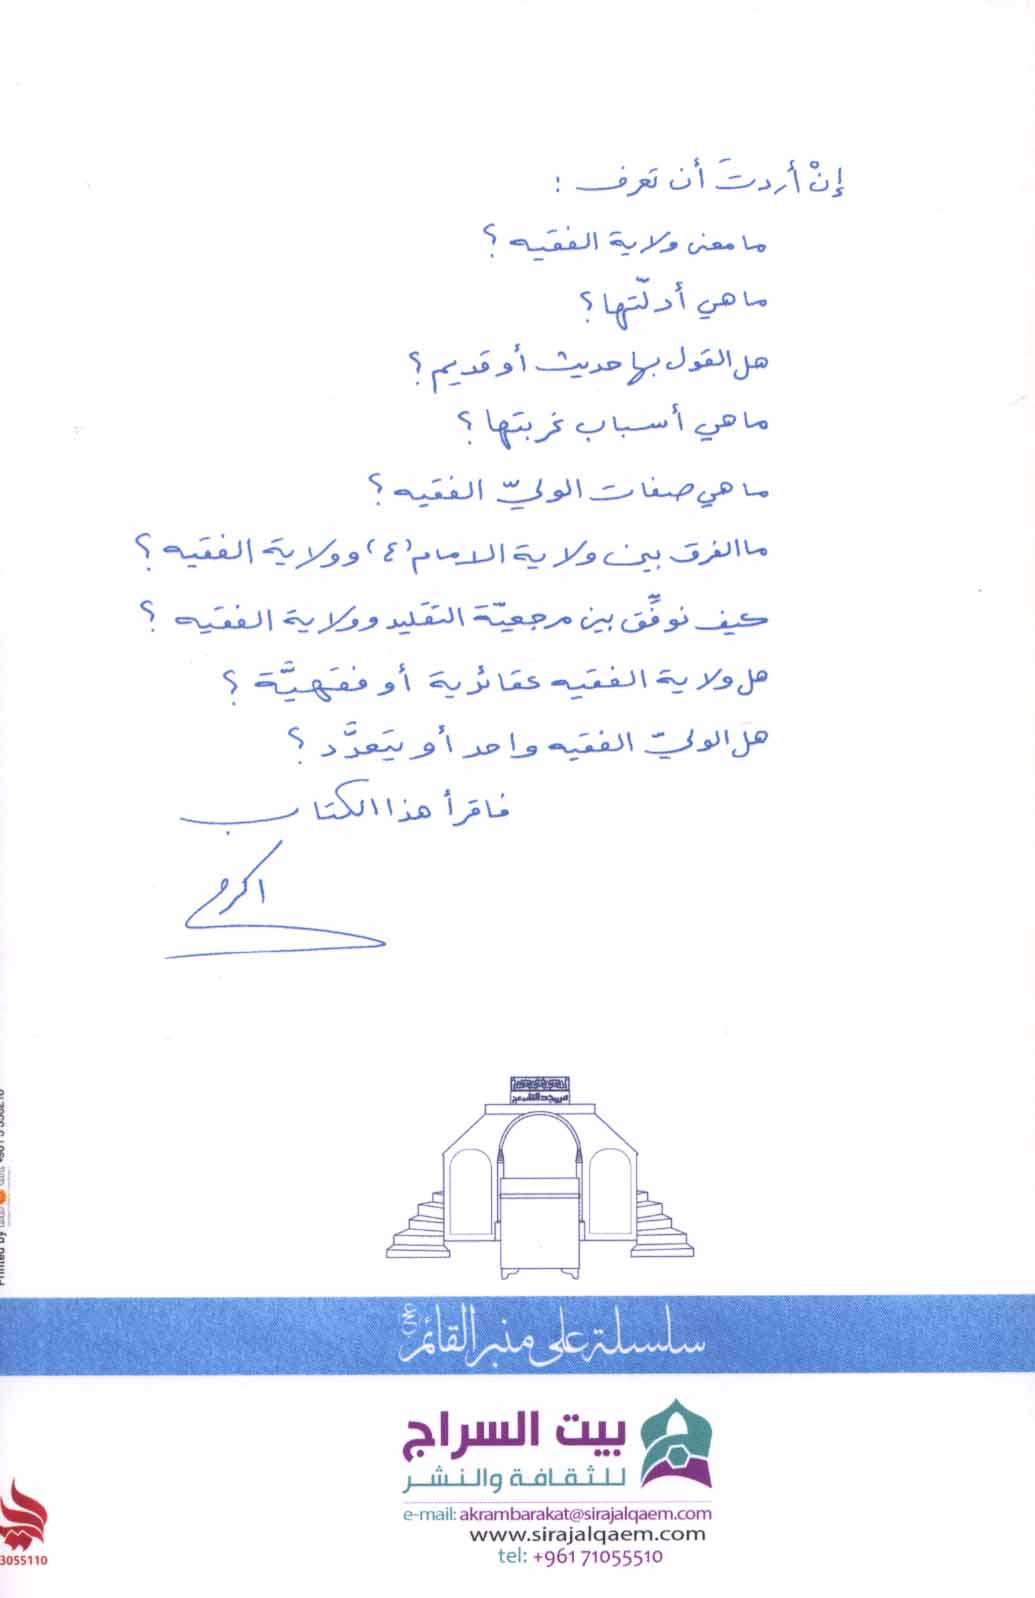 إنْ أردتَ أن تعرف :
ما معنى ولاية الفقيه ؟
ما هي أدلّتها ؟
هل القول بها حديث أو قديم ؟
ما هي أسباب غربتها ؟
ما هي صفات الوليّ الفقيه ؟
ما الفرق بين ولاية الامام (ع) وولاية الفقيه ؟
كيف نوفِّق بين مرجعيّة التقليد وولاية الفقيه ؟
هل ولاية الفقيه عقائدية أو فقهيَّة ؟
هل الوليّ الفقيه واحد أو يتعدَّد ؟
فاقرأ هذا الكتاب
اكرم
سلسلة على منبر القائم
بيت السراج
للثقافة والنشر
e-mail: akrambarakat@sirajalqaem.com
www.sirajalqaem.com
tel: +961 71055510
Printed by
3055110